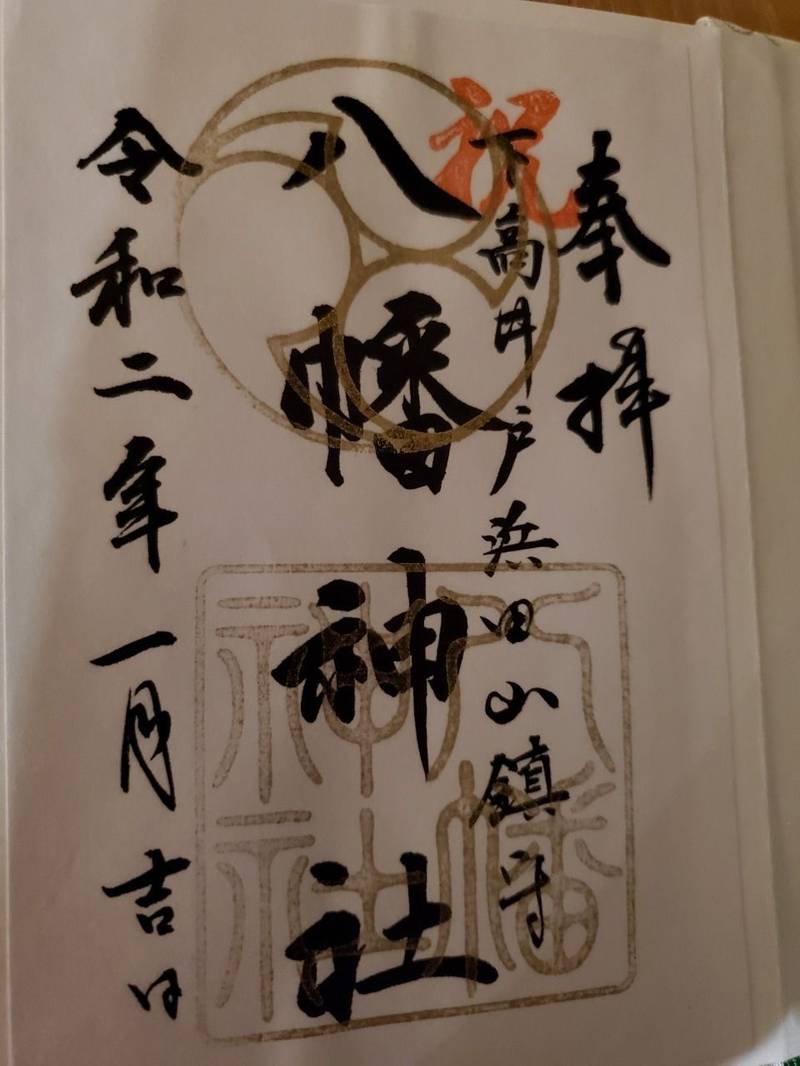 奉拝
祝
下高井戸浜田山鎮守
八幡神社
令和二年一月吉日
八幡
神社